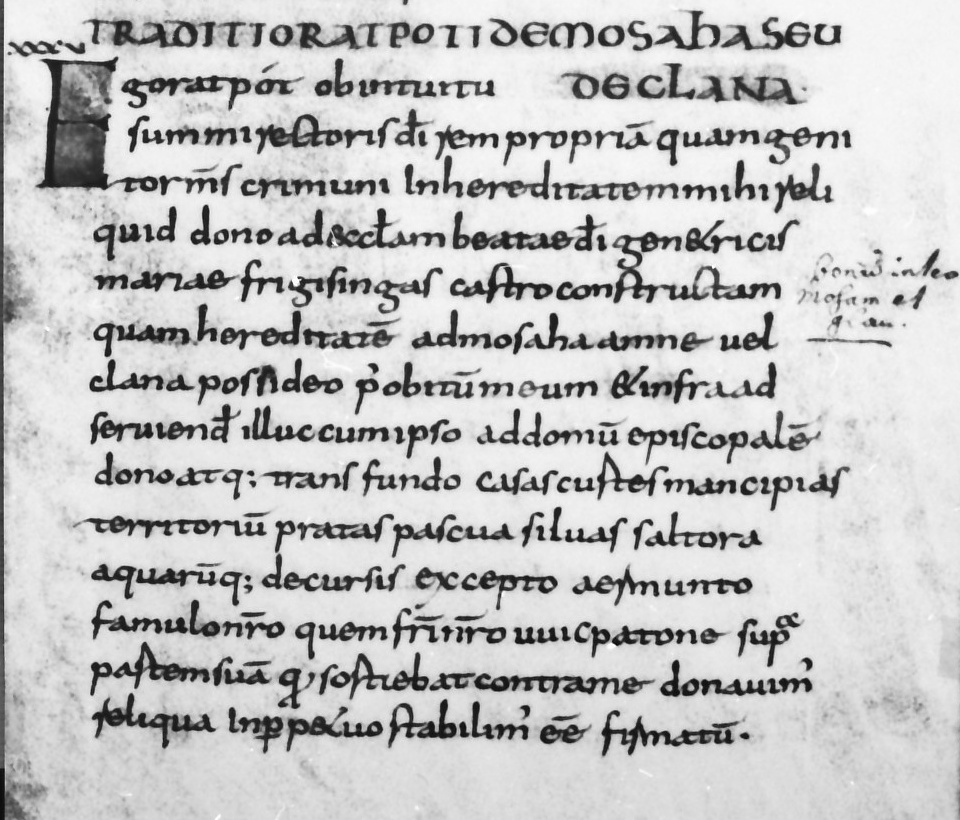 xxxv TRADITIO RATPOTI DE MOSAHA SEU
Ego ratpot ob intuitu DE CLANA
summi rectoris dī rem propriā quam geni
tor m̄s crimuni In hereditatem mihi reli
quid dono ad &ccl̄am beatae dī gen&ricis
mariae frigisingas castro constructam
quam hereditatē ad mosaha amne vel
clana possideo p̓ obitū meum & infra ad
seruiend̄ illuc cum ipso ad domū episcopalē
dono atq; trans fundo casas curtes mancipias
territoriū pratas pascua siluas saltora
aquarūq; decursis excepto aermunto
famulo nr̄o quem fr̄i nr̄o uuicpatone sup̄
partem suā q sortiebat contra me donauim̓
reliqua In p̱p&uo stabilim̓ eē firmatū.
mosam et